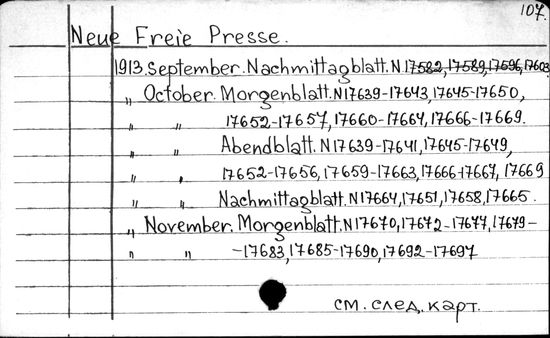 107.
Neue Freie Presse.
1913. September. Nachmittagblatt. N 17582, 17589, 17596, 17603
„ October. Morgenblatt. N 17639-17643, 17645-17650,
„ „ 17652-17657, 17660-17664, 17666-17669.
„ „ Abendblatt. N 17639-17641, 17645-17649,
„ „ 17652-17656, 17659-17663, 17666-17667, 17669
„ „ Nachmittagblatt. N 17664, 17651, 17658, 17665.
„ November. Morgenblatt. N 17670, 17672-17677, 17679-
„ „ -17683, 17685-17690, 17692-17697
см. след. карт.